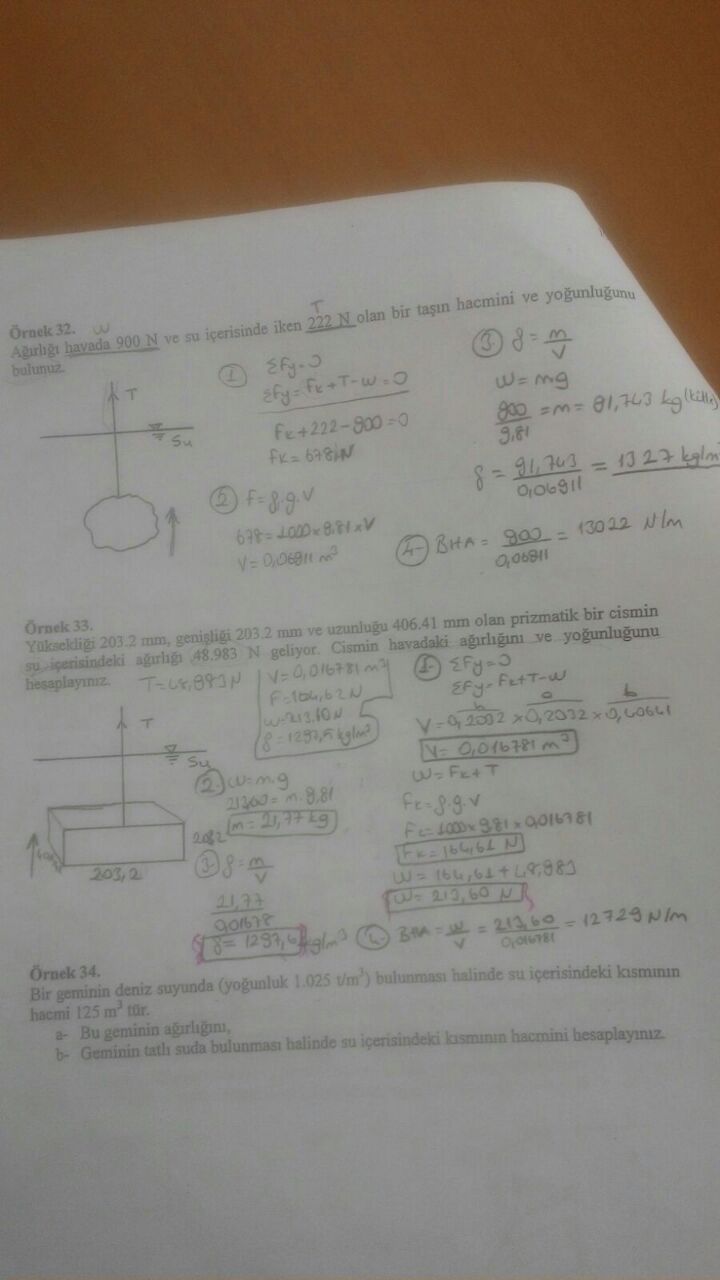 Örnek 32.
W
T
Ağırlığı havada 900 N ve su içerisinde iken 222 N olan bir taşın hacmini ve yoğunluğunu
bulunuz.
T
Su
1
ΣFy=0
ΣFy=Fk+T-W=0
Fk+222-900=0
Fk=678 N
2 F=ρ.g.V
678=1000x9.81xV
V=0,06911 m³
3 ρ = m/V
W=mg
900/9,81 = m = 91,743 kg (kütle)
ρ = 91,743/0,06911 = 1327 kg/m³
4- BHA = 900/0,06911 = 13022 N/m
Örnek 33.
Yüksekliği 203.2 mm, genişliği 203.2 mm ve uzunluğu 406.41 mm olan prizmatik bir cismin
su içerisindeki ağırlığı 48.983 N geliyor. Cismin havadaki ağırlığını ve yoğunluğunu
hesaplayınız.
T=48,983N
V=0,016781 m³
F=164,62N
W=213.60N
ρ=1297,6 kg/m³
T
Su
203,2
1- ΣFy=0
ΣFy=Fk+T-W
h a b
V=0,2032 x 0,2032 x 0,40641
V= 0,016781 m³
W=Fk+T
Fk=ρ.g.V
Fk=1000x9,81x0,016781
Fk=164,61 N
W=164,61+48,983
W=213,60 N
2. W=m.g
213,60=m.9,81
m=21,77 kg
3- ρ=m/V
21,77/0,01678
ρ=1297,6 kg/m³
4- BHA = W/V = 213,60/0,016781 = 12729 N/m
Örnek 34.
Bir geminin deniz suyunda (yoğunluk 1.025 t/m³) bulunması halinde su içerisindeki kısmının
hacmi 125 m³ tür.
a- Bu geminin ağırlığını,
b- Geminin tatlı suda bulunması halinde su içerisindeki kısmının hacmini hesaplayınız.